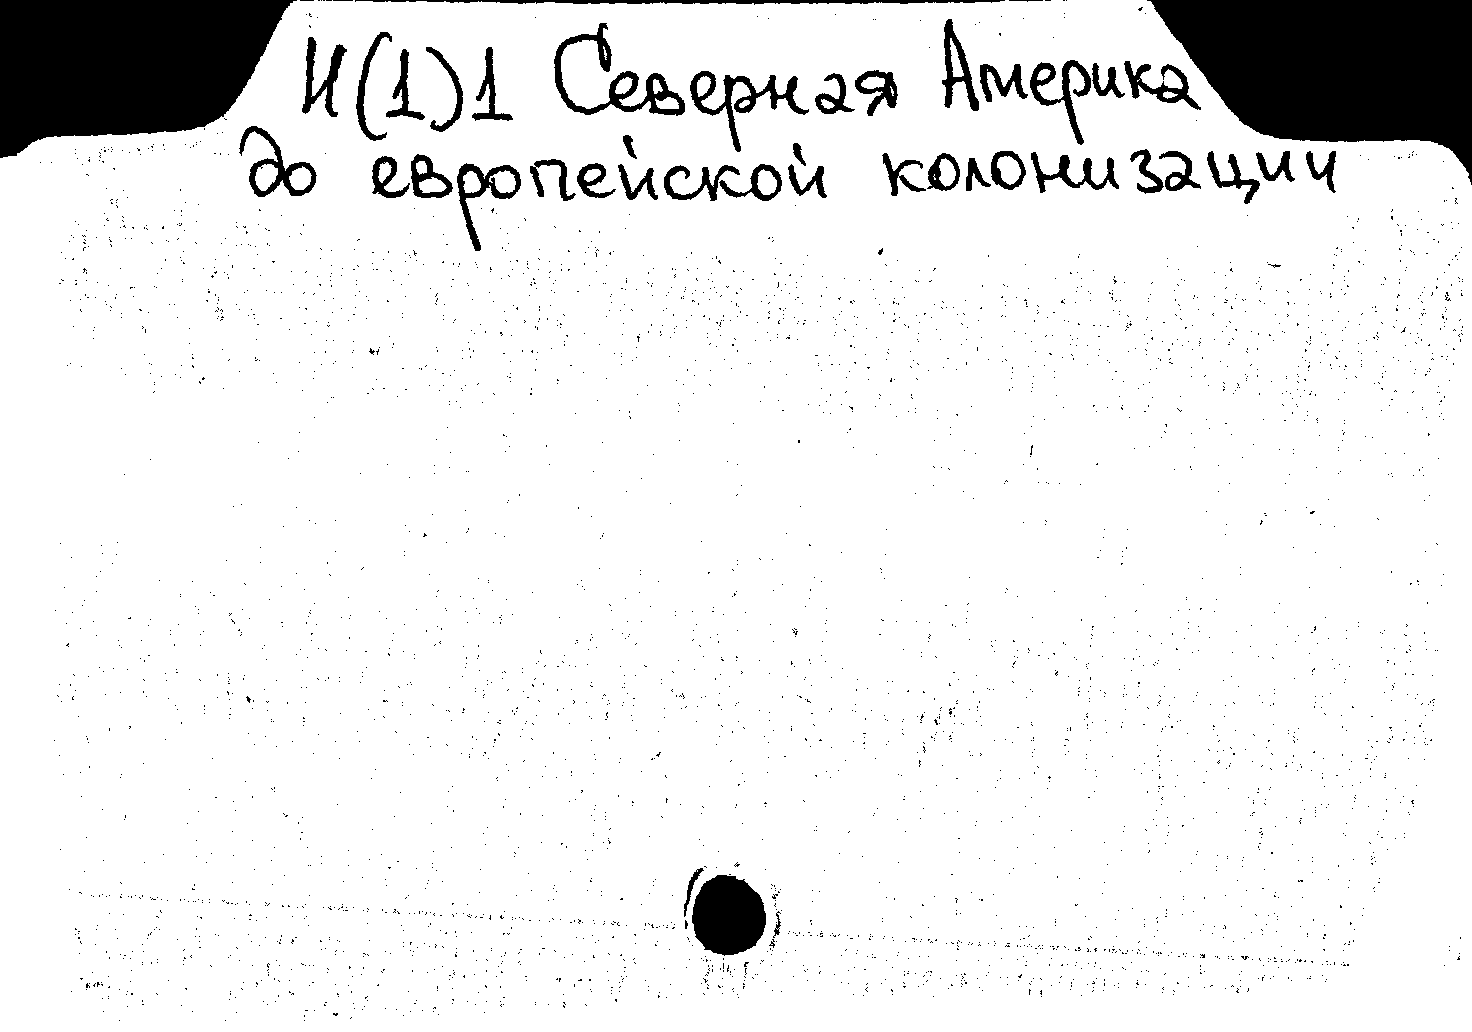 И(1)1 Северная Америка
до европейской колонизации